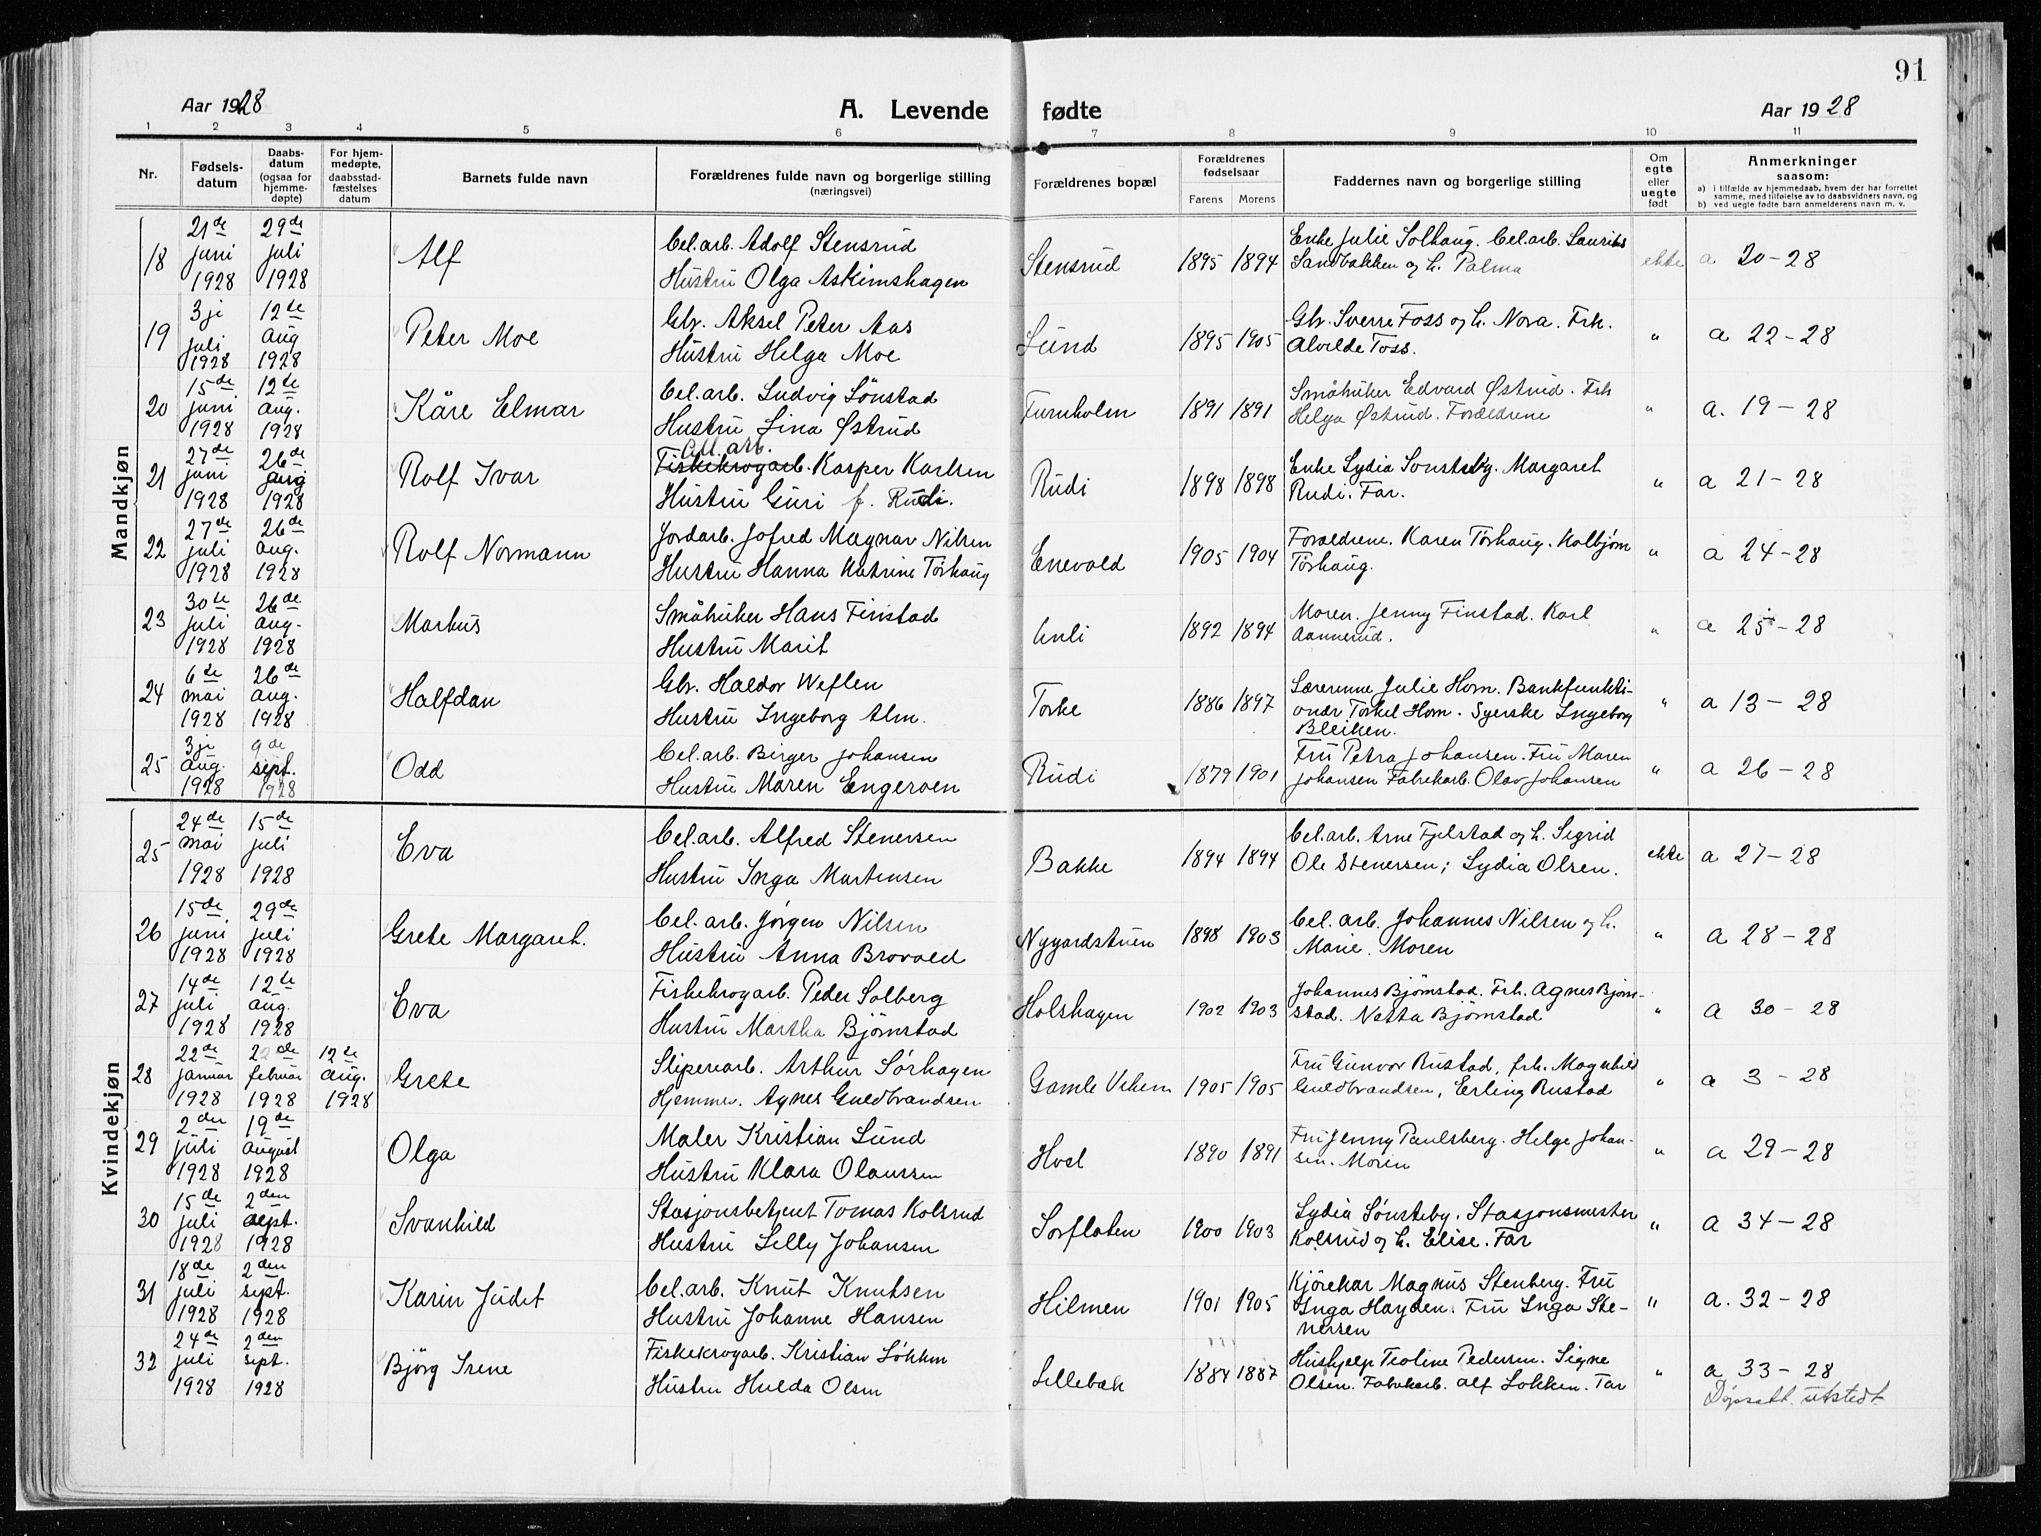 91
Aar 1928
A. Levende fødte
Aar 1928
1 2 3 4 5 6 7 8 9 10 11
Nr.
Fødsels-
datum
Daabs-
datum
(ogsaa for
hjemme-
døpte)
For hjem-
medøpte,
daabsstad-
fæstelses
datum
Barnets fulde navn
Forældrenes fulde navn og borgerlige stilling
(næringsvei)
Forældrenes bopæl
Forældrenes
fødselsaar
Farens Morens
Faddernes navn og borgerlige stilling
Om
egte
eller
uegte
født
Anmerkninger
saasom:
a) i tilfælde av hjemmedaab, hvem der har forrettet
samme, med tilføielse av to daabsvidners navn, og
b) ved uegte fødte barn anmelderens navn m. v.
Mandkjøn
18 21de juni 1928 29de juli 1928 Alf
Cel.arb. Adolf Stensrud
Hustru Olga Askimshagen
Stensrud 1895 1894
Enke Julie Solhaug. Cel.arb. Laurits
Sandbakken og h. Palma
ekte a 20-28
19 3je juli 1928 12te aug 1928 Peter Moe
Gbr. Aksel Peter Aas
Hustru Helga Moe
Lund 1895 1905
Gbr. Sverre Foss og h. Nora. Frk.
Alvilde Foss.
" a 22-28
20 15de juni 1928 12te aug. 1928 Kåre Elmar
Cel.arb. Ludvig Sønstad
Hustru Lina Østrud
Furuholm 1891 1891
Småbruker Edvard Østrud. Frk
Helga Østrud. Foreldrene
" a. 19-28
21 27de juni 1928 26de aug 1928 Rolf Ivar
All.arb.
Fiskekrogarb. Kasper Karlsen
Hustru Guri f. Rudi.
Rudi 1898 1898
Enke Lydia Sønsteby. Margaret
Rudi. Far.
" a 21-28
22 27de juli 1928 26de aug. 1928 Rolf Normann
Jordarb. Jofred Magnar Nilsen
Hustru Hanna Katrine Torhaug
Enevold 1905 1904
Foreldrene. Karen Torhaug. Kolbjørn
Torhaug.
" a 24-28
23 30te juli 1928 26de aug. 1928 Markus
Småbruker Hans Finstad
Hustru Marit
Enli 1892 1894
Moren. Jenny Finstad. Karl
Aannerud.
" a 25-28
24 6te mai 1928 26de aug. 1928 Halfdan
Gbr. Haldor Weflen
Hustru Ingeborg Alm.
Torke 1886 1897
Lærerinne Julie Horn. Bankfunkti-
onær Torkel Horn. Syerske Ingeborg
Bleiken.
" a 13-28
25 3je aug. 1928 9de sept. 1928 Odd
Cel.arb. Birger Johansen
Hustru Maren Engeroen
Rudi 1879 1901
Fru Petra Johansen. Fru Maren
Johansen Fabrikarb. Olav Johansen
" a 26-28
Kvindekjøn
25 24de mai 1928 15de juli 1928 Eva
Cel.arb. Alfred Stenersen
Hustru Inga Martinsen
Bakke 1894 1894
Cel.arb. Arne Fjelstad og h. Sigrid
Ole Stenersen; Lydia Olsen.
ekte a 27-28
26 15de juni 1928 29de juli 1928 Grete Margaret.
Cel.arb. Jørgen Nilsen
Hustru Anna Brovold
Nygardstuen 1898 1903
Cel.arb. Johannes Nilsen og h.
Marie. Moren
" a 28-28
27 14de juli 1928 12te aug. 1928 Eva
Fiskekrogarb. Peder Solberg
Hustru Martha Bjørnstad
Holshagen 1902 1903
Johannes Bjørnstad. Frk. Agnes Bjørn-
stad. Netta Bjørnstad
" a 30-28
28 22de januar 1928 22de februar 1928 12te aug. 1928 Grete
Sliperiarb. Arthur Sørhagen
Hjemmev. Agnes Guldbrandsen
Gamle Vehem 1905 1905
Fru Gunvor Rustad, frk. Magnhild
Guldbrandsen, Erling Rustad
" a 3-28
29 2den juli 1928 19de august 1928 Olga
Maler Kristian Lund
Hustru Klara Olaussen
Hvol 1890 1891
Fru Jenny Paulsberg. Helge Johan-
sen. Moren
" a 29-28
30 15de juli 1928 2den sept. 1928 Svanhild
Stasjonsbetjent Tomas Kolsrud
Hustru Lilly Johansen
Sorfloten 1900 1903
Lydia Sønsteby. Stasjonsmester
Kolsrud og h. Elise. Far
" a 34-28
31 18de juli 1928 2den sept. 1928 Karin Judit
Cel.arb. Knut Knutsen
Hustru Johanne Hansen
Hilmen 1901 1905
Kjørekar Magnus Stenberg. Fru
Inga Hayden. Fru Inga Ste-
nersen
" a. 32-28
32 24de juli 1928 2den sept. 1928 Bjørg Irene
Fiskekrogarb. Kristian Løkken
Hustru Hulda Olsen
Lillebæk 1884 1887
Hushjelp Teoline Pedersen. Signe
Olsen. Fabrikarb. Alf Løkken. Far
" a 33-28
Dåpsatt. utstedt